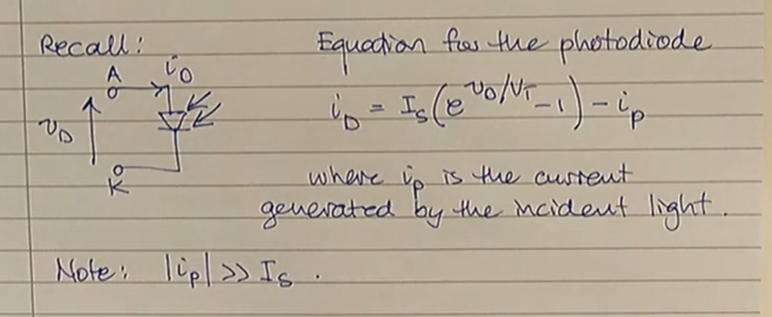 Recall:
Equation for the photodiode
A
i_D
v_D
K
i_D = I_S(e^{v_D/V_T} - 1) - i_p
where i_p is the current
generated by the incident light.
Note: |i_p| >> I_S.